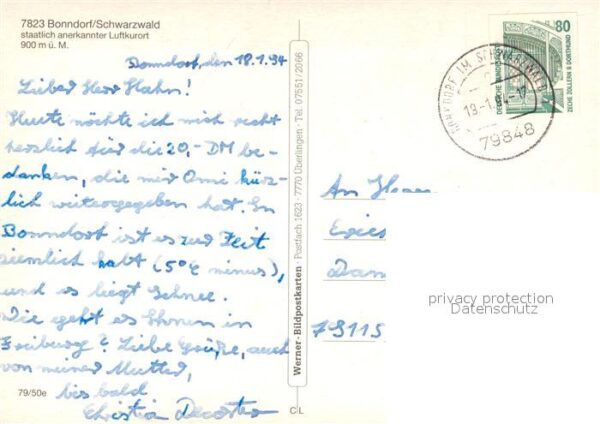 7823 Bonndorf/Schwarzwald
staatlich anerkannter Luftkurort
900 m ü. M.
Bonndorf, den 18.1.94
Lieber Herr Hahn!
Heute möchte ich mich recht
herzlich für die 20,- DM be-
danken, die mir Omi kürz-
lich weitergegeben hat. In
Bonndorf ist es zur Zeit
ziemlich kalt (5°C minus),
und es liegt Schnee.
Wie geht es Ihnen in
Freiburg? Liebe Grüße, auch
von meiner Mutter,
bis bald
Christia
79/50e
Werner-Bildpostkarten · Postfach 1623 · 7770 Überlingen · Tel. 07551/2366
CL
DEUTSCHE BUNDESPOST
80
ZECHE ZOLLERN II DORTMUND
BONNDORF IM SCHWARZWALD
79848
An
79115
privacy protection
Datenschutz